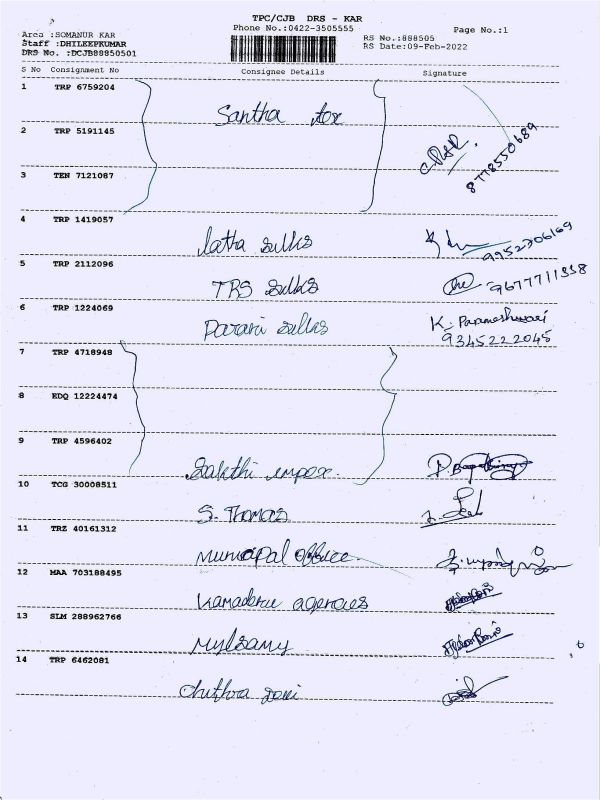 TPC/CJB DRS - KAR
Phone No.:0422-3505555
Page No.:1
Area :SOMANUR KAR
Staff :DHILEEPKUMAR
DRS No. :DCJB88850501
RS No.:888505
RS Date:09-Feb-2022
S No Consignment No Consignee Details Signature
1 TRP 6759204
Santha tex
2 TRP 5191145
8778550689
3 TEN 7121087
4 TRP 1419057
latha silks 9952706169
5 TRP 2112096
TRS silks 9677711338
6 TRP 1224069
Parani silks K. Parameshwari
9345222045
7 TRP 4718948
8 EDQ 12224474
9 TRP 4596402
Sakthi impex.
10 TCG 30008511
S. Thomas
11 TRZ 40161312
Municipal office
12 MAA 703188495
Kamadenu agencies
13 SLM 288962766
Mylsamy
14 TRP 6462081
Chithra